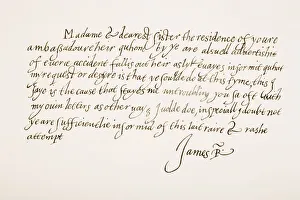 Madame & dearest sister the residence of youre
ambassadoure heir quhom by ye are alsuell advertishit
of everie accident fallis out heir as by
my request or desyre is that ye soulde do at this tyme, this I
saye is the cause that stayes me untroubling you sa oft with
my own letters as otherways I sulde doe, inspeciall I doubt not
ye are sufficientlie informid of this lait raire & rashe
attempt
James R